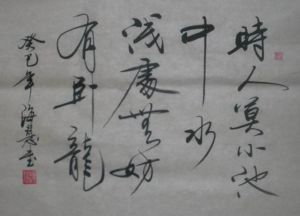 時人莫小池
中水
淺處無妨
有卧龍
癸巳年 海